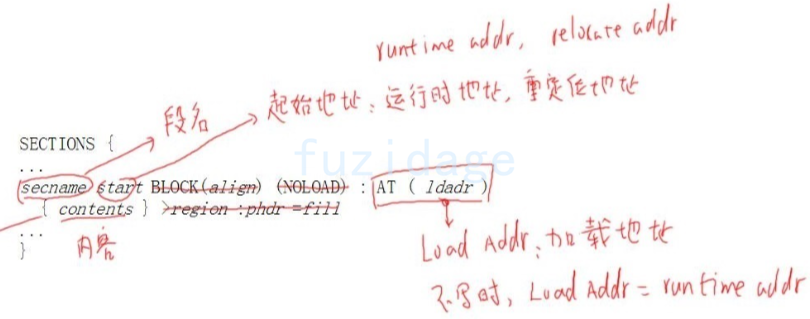 runtime addr, relocate addr
段名
起始地址:运行时地址,重定位地址
SECTIONS {
fuzidage
...
secname start BLOCK(align) (NOLOAD) : AT ( ldadr )
{ contents } >region :phdr =fill
...
内容
}
Load Addr:加载地址
不写时, Load Addr = runtime addr